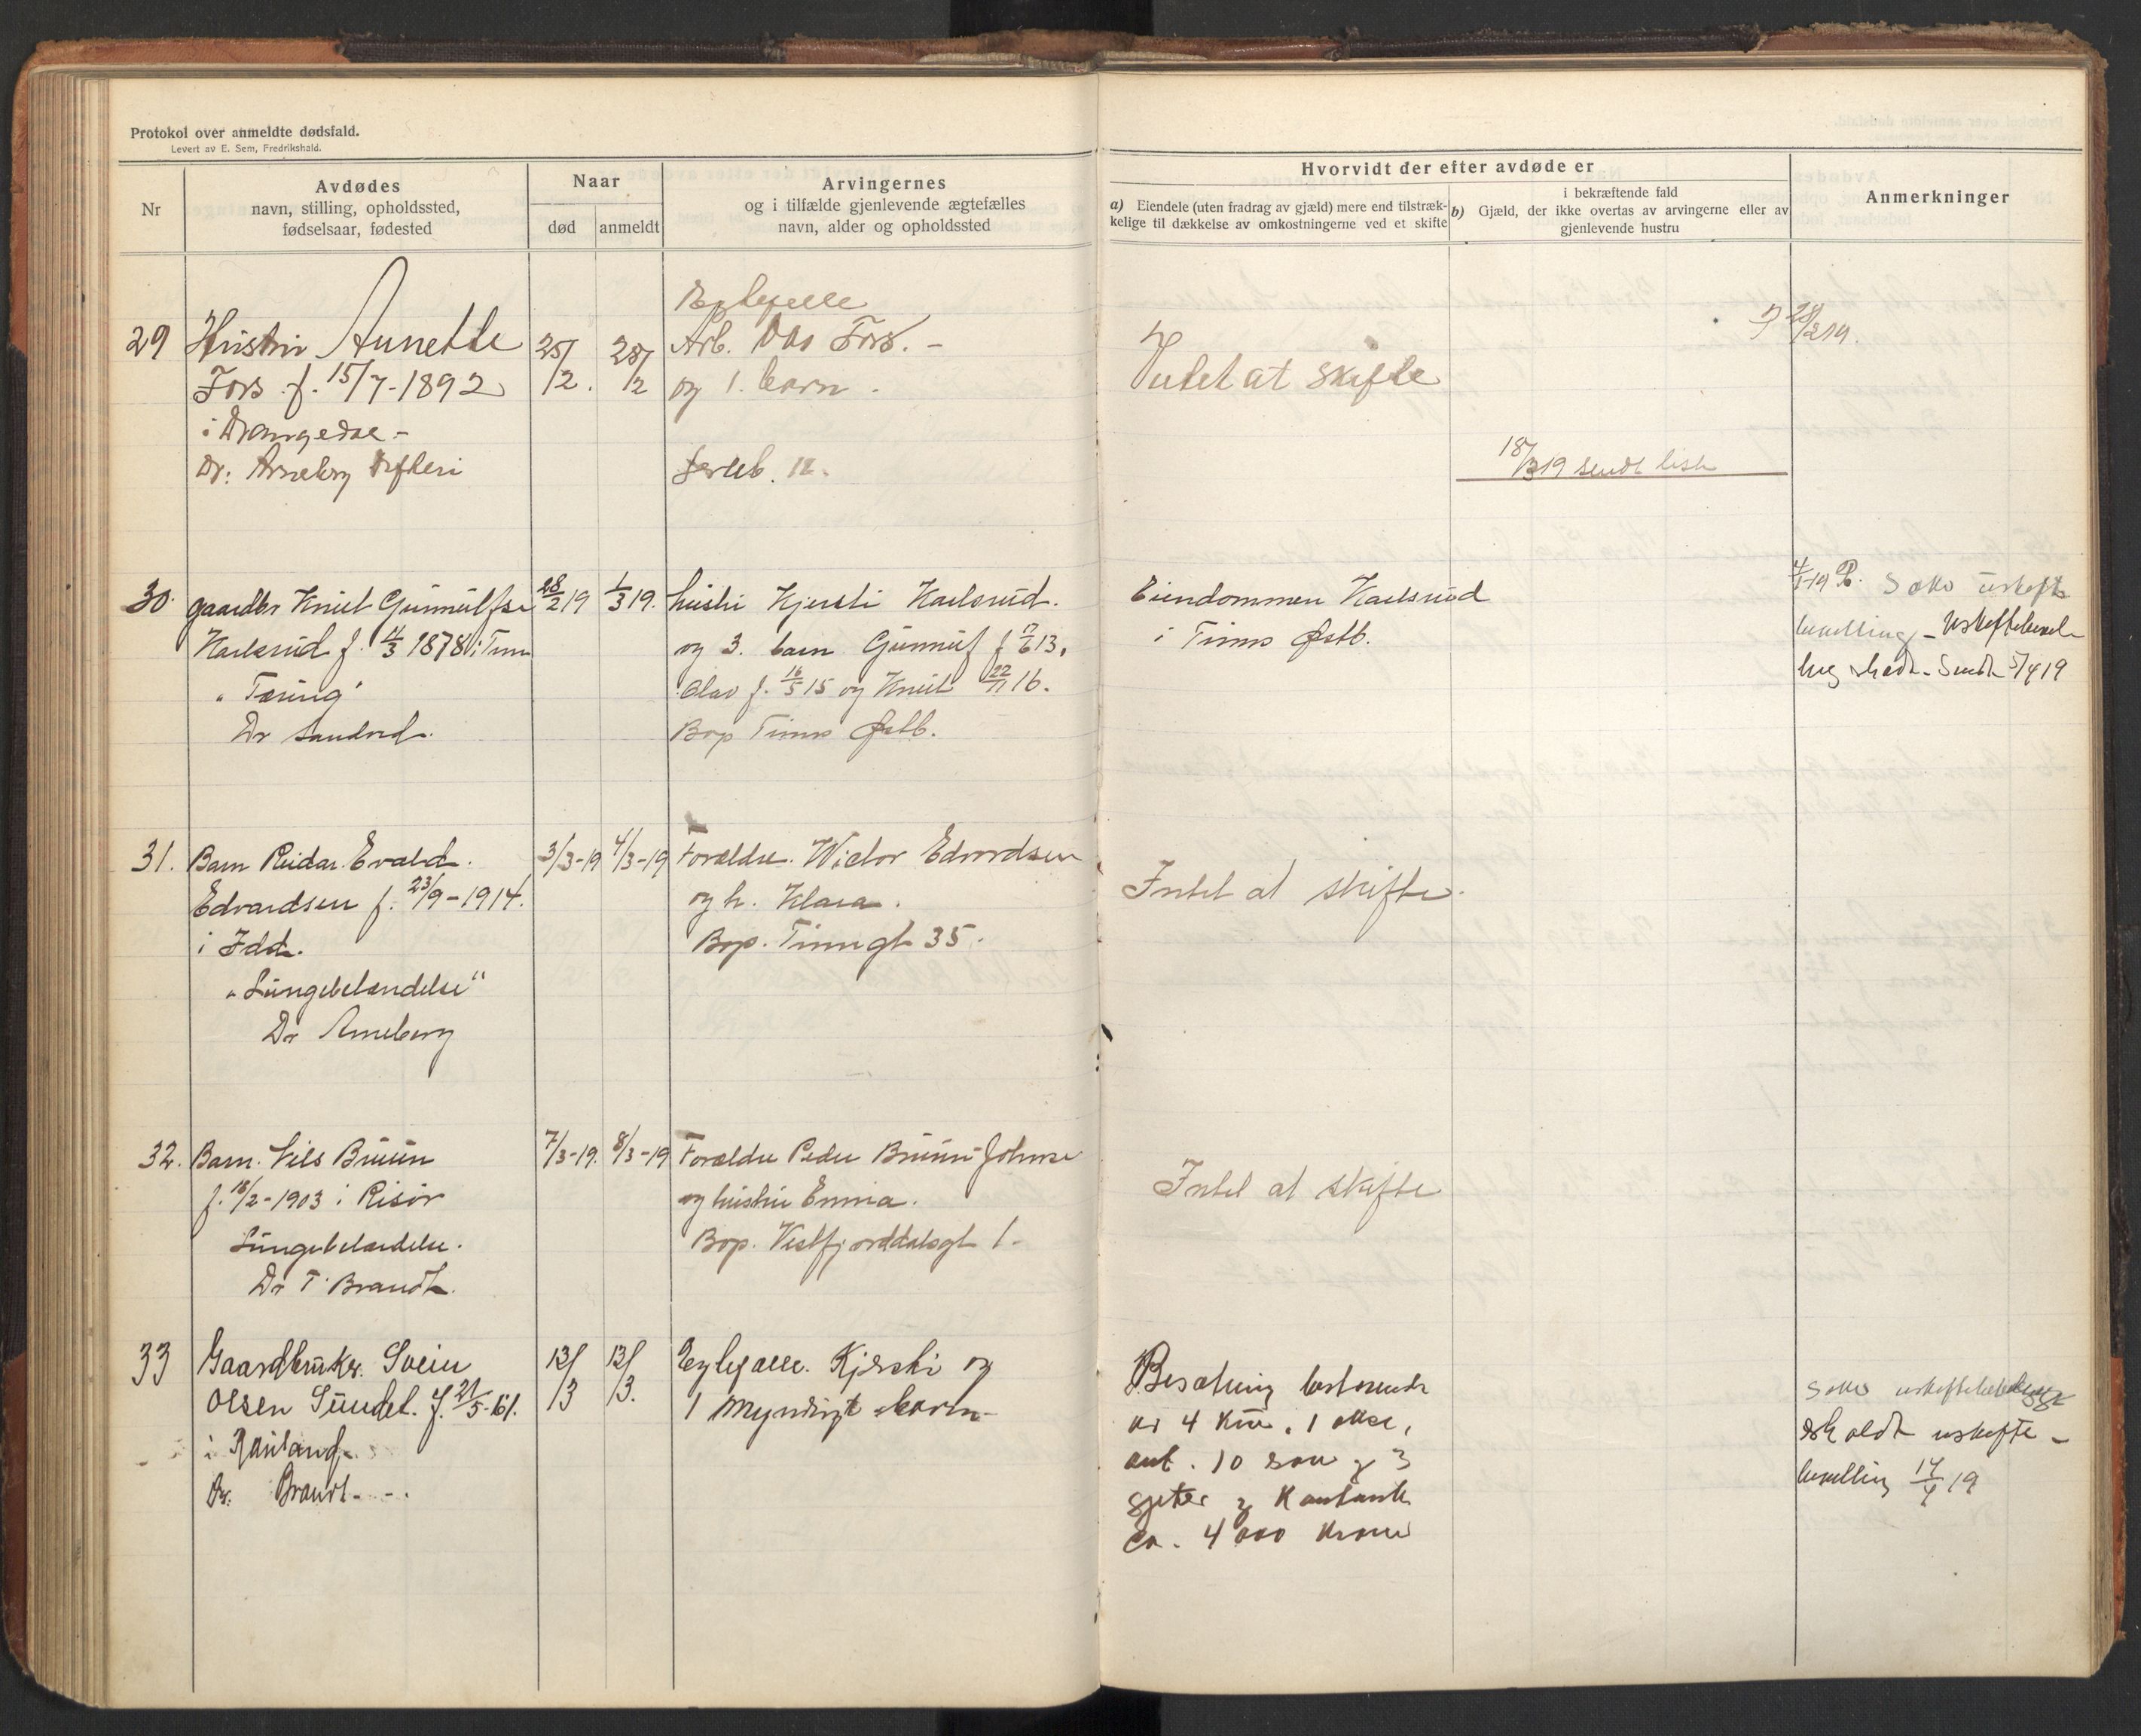 Protokol over anmeldte dødsfald.
Levert av E. Sem, Fredrikshald.
Nr
Avdødes
navn, stilling, opholdssted,
fødselsaar, fødested
Naar
død
anmeldt
Arvingernes
og i tilfælde gjenlevende ægtefælles
navn, alder og opholdssted
Hvorvidt der efter avdøde er
a) Eiendele (uten fradrag av gjæld) mere end tilstræk-
kelige til dækkelse av omkostningerne ved et skifte
i bekræftende fald
b) Gjæld, der ikke overtas av arvingerne eller av
gjenlevende hustru
Anmerkninger
29
Hustru Annette
Fors f. 15/7-1892
i Drangedal -
Dr: Arneberg Difteri
25/2.
28/2
Ægtefælle
Arb. Fors. -
og 1. barn.
12.
Intet at skifte
18/3 19 sendt liste
28/2 19.
30.
gaardbr Knut Gunnulfsen
Karlsrud f. 4/3 1878 i Tinn
"Tæring"
Dr Sandved.
28/2 19
1/3 19.
hustru Kjersti Karlsrud.
og 3. barn Gunnulf f 17/6 13,
Olav f. 16/5 15 og Knut 22/11 16.
Bop Tinns Østb.
Eiendommen Karlsrud
i Tinns Østb.
19 Søkt uskifte
bevilling - Uskiftebevil-
ling - Sendt 5/4 19
31.
Barn Reidar Evald.
Edvardsen f. 23/9-1914.
i Idd.
"Lungebetændelse"
Dr Arneberg
3/3-19
4/3-19
Forældre. Victor Edvardsen
og h. Klara.
Bop. Tinngt 35.
Intet at skifte.
32.
Barn. Nils Bruun
f. 18/2-1903 i Risør
Lungebetændelse.
Dr T. Brandt.
7/3-19.
8/3-19
Forældre Peder Bruun-Johnsen
og hustru Emma.
Bop. Vestfjorddalsgt 1.
Intet at skifte
33
Gaardbruker. Svein
Olsen Sundet. f. 21/5-61.
i Rauland -
Dr. Brandt - -.
13/3
13/3.
Ægtefælle. Kjersti og
1 myndigt barn -
Besætning bestaaende
av 4 kur, 1 okse,
ant. 10 sau og 3
gjeter og kontante
ca. 4000 kroner
Søkt
uskifte-
bevilling 14/4 19